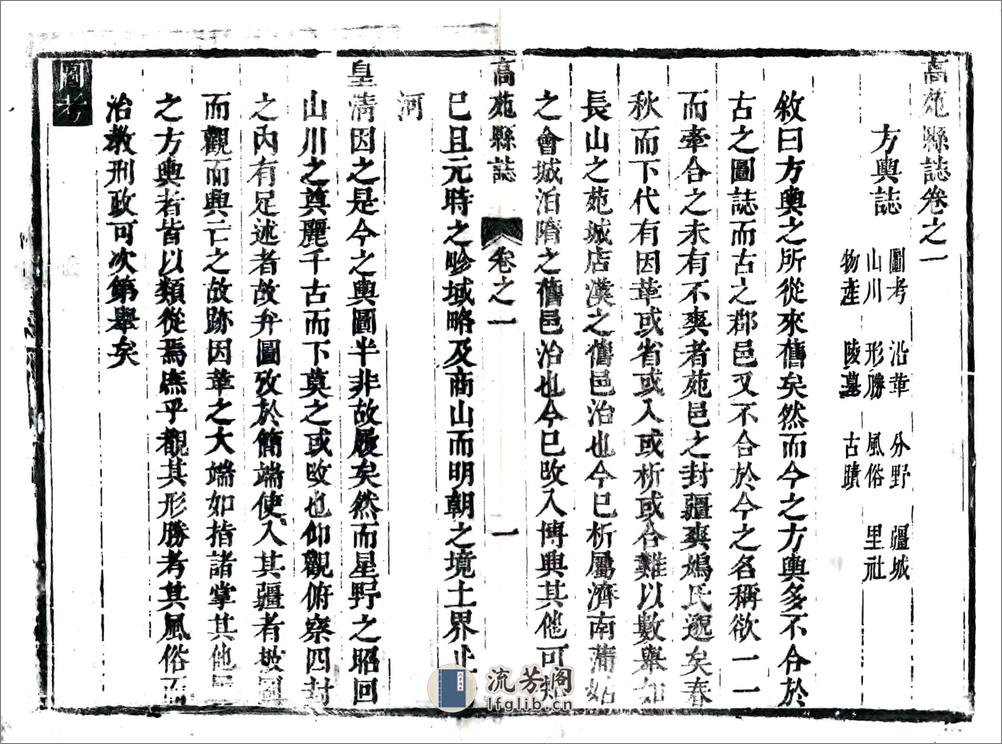 高苑縣誌卷之一
方輿誌
圖考 沿革 分野 疆域
山川 形勝 風俗 里社
物產 陵墓 古蹟
敘曰方輿之所從來舊矣然而今之方輿多不合於
古之圖誌而古之郡邑又不合於今之名稱欲一一
而牽合之未有不爽者苑邑之封疆爽鳩氏邈矣春
秋而下代有因革或省或入或析或合難以數舉如
長山之苑城店漢之舊邑治也今已析屬濟南蒲姑
之會城泊隋之舊邑治也今已改入博興其他可知
高苑縣誌
卷之一
一
已且元時之畛域略及商山而明朝之境土界止
河
皇清因之是今之輿圖半非故履矣然而星野之昭回
山川之奠麗千古而下莫之或改也仰觀俯察四封
之內有足述者故弁圖攷於簡端使入其疆者披圖
而觀而興亡之故跡因革之大端如指諸掌其他
之方輿者皆以類從焉庶乎觀其形勝考其風俗而
治教刑政可次第舉矣
圖考
流芳阁
lfglib.com